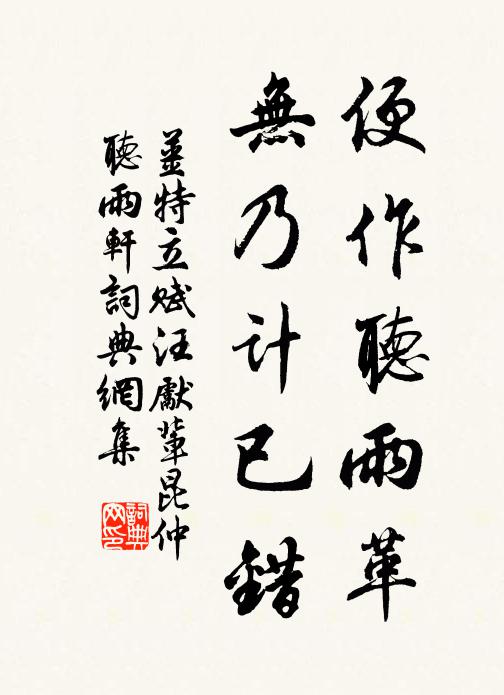 便作聽雨革
無乃計已錯
姜特立賦汪獻輩昆仲
聽雨軒詞典網集
詞典網印